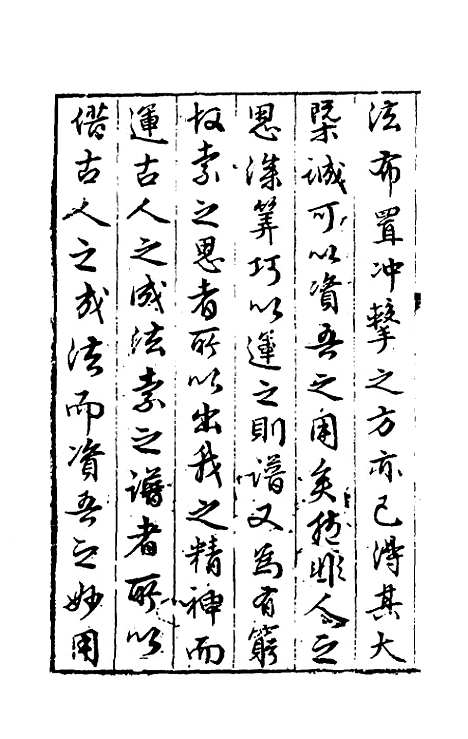 法布置冲擊之方亦已得其大
槩誠可以資吾之用矣然非人之
思深筭巧以運之則譜又為有窮
故索之思者所以出我之精神而
運古人之成法索之譜者所以
借古人之成法而資吾之妙用